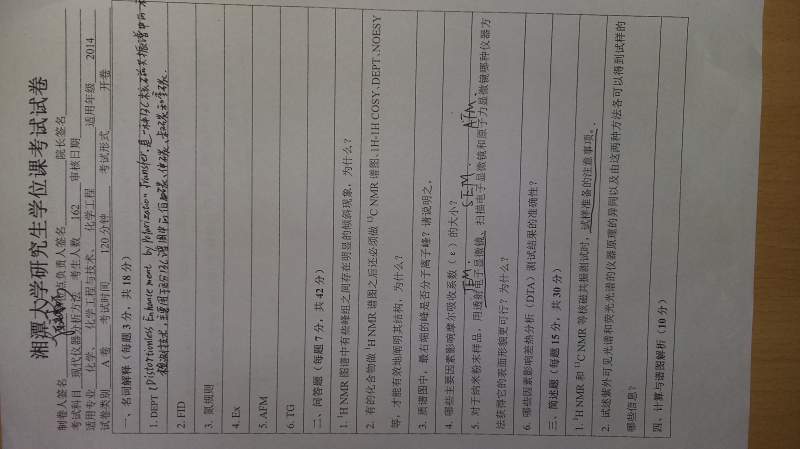 湘潭大学研究生学位课考试试卷
制卷人签名 学位点负责人签名 院长签名
考试科目 现代仪器分析方法 考生人数 162 审核日期
适用专业 化学、 化学工程与技术、 化学工程 适用年级 2014
试卷类别 A 卷 考试时间 120 分钟 考试形式 开卷
一、名词解释（每题 3 分，共 18 分）
1. DEPT (Distortionless Enhancement by Polarization Transfer. 是一种13C核磁共振谱中的
检测技术，主要用于区分13C谱图中的伯碳、仲碳、叔碳和季碳.
2. FID
3. 氮规则
4. Ex
5. AFM
6. TG
二、问答题（每题 7 分，共 42 分）
1. ¹H NMR 图谱中有些峰组之间存在明显的倾斜现象，为什么？
2. 有的化合物做 ¹H NMR 谱图之后还必须做 ¹³C NMR 谱图、1H-1H COSY、DEPT、NOESY
等，才能有效地阐明其结构，为什么？
3. 质谱图中，最右端的峰是否分子离子峰？请说明之。
4. 哪些主要因素影响摩尔吸收系数（ε）的大小？
TEM. SEM. AFM.
5. 对于纳米粉末样品，用透射电子显微镜、扫描电子显微镜和原子力显微镜哪种仪器方
法获得它的表面形貌更可行？为什么？
6. 哪些因素影响差热分析（DTA）测试结果的准确性？
三、简述题（每题 15 分，共 30 分）
1. ¹H NMR 和 ¹³C NMR 等核磁共振测试时，试样准备的注意事项。
2. 试述紫外可见光谱和荧光光谱的仪器原理的异同以及由这两种方法各可以得到试样的
哪些信息？
四、计算与谱图解析（10 分）